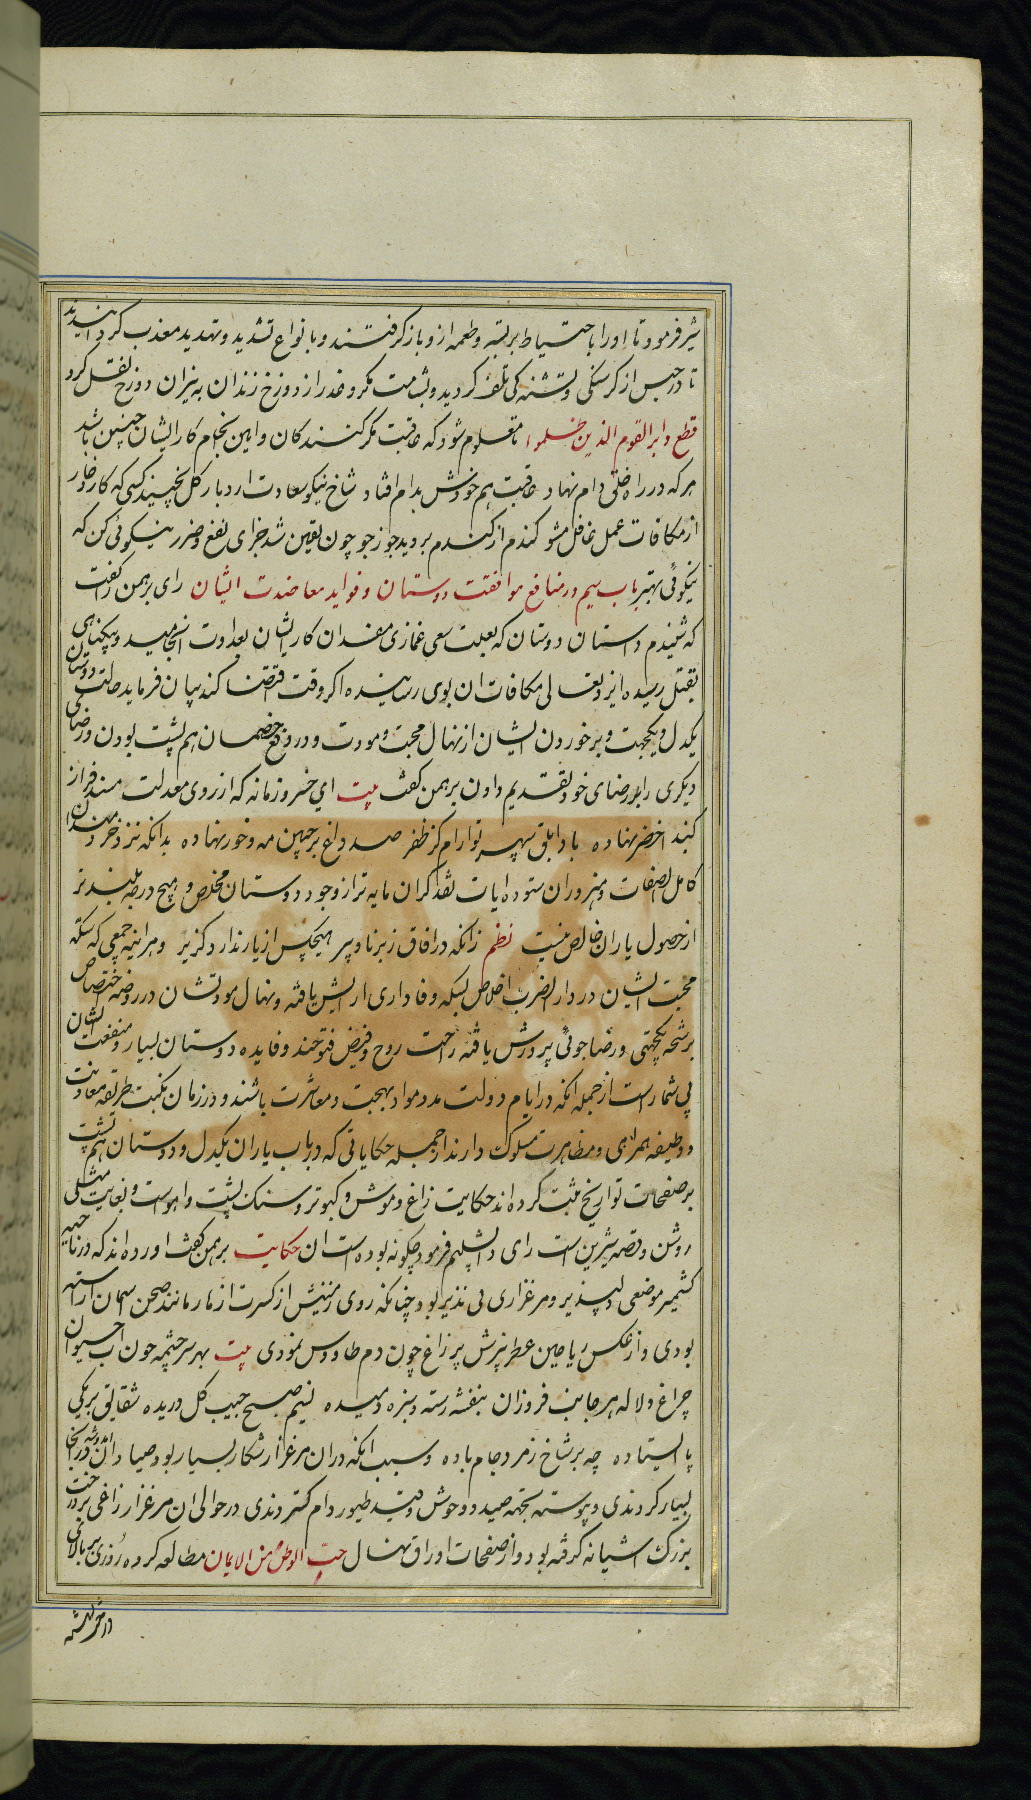 شیر فرمود تا او را باحتیاط بربسته و طعمه ازو باز کرفتند و بانواع تشدید و تهدید معذب کردانیدند
تا در حبس از کرسنکی و تشنه کی تلف کردید و بشامت مکر و غدر از دوزخ زندان به نیران دوزخ نقل کرد
فقطع دابر القوم الذین ظلموا تا معلوم شود که عاقبت مکر کنندکان و این نجام کار ایشان چنین باشد
هر که در راه خلق دام نهاد عاقبت هم خودش بدام افتاد شاخ نیکو سعادت ارد بار کل نچیند کسی که کارد خار
از مکافات عمل غافل مشو کندم از کندم بروید جو ز جو چون یقین شد جزای نفع و ضرر نیکوئی کن که
نیکوئی بهتر باب سیم در منافع موافقت دوستان و فواید معاضدت ایشان رای برهمن را کفت
که شنیدم داستان دوستان که بعلت سعی غمازی مفسدان کار ایشان بعداوت انجامید و بیکناهی
بقتل رسیده ایزد تعالی مکافات ان بوی رسانیده اکر وقت اقتضا کند بیان فرماید حالت دوستان
یکدل و یکجهت و برخوردن ایشان از نهال محبت و مودت و در دفع خصمان هم پشت بودن و رضای
دیکری را بر رضای خود تقدیم دادن برهمن کفت بیت ای خسرو زمانه که از روی معدلت مسند فراز
کنبد اخضر نهاده با دابلق سپهر تو ارام کز ظفر صد داغ بر جبین مه و خور نهاده بدانکه نزد خردمندان
کامل الصفات و هنروران ستوده ایات نقد کران مایه تر از وجود دوستان مخلص و هیچ درجه بلند تر
از حصول یاران خالص نیست نظم زانکه در افاق ز برنا و پیر هیچکس از یار ندارد کزیر و هراینه جمعی که سکه
محبت ایشان در دار الضرب اخلاص بسکه وفاداری ارایش یافته و نهال مودتشان در روضه اختصاص
برشحه یکجهتی و رضاجوئی پرورش یافته راحت روح و فیض فتوحند و فایده دوستان بسیار و منفعت ایشان
بی شمار است از جمله انکه در ایام دولت مدد مواد بهجت و معاشرت باشند و در زمان نکبت طریقه معاونت
و وظیفه همراهی و مظاهرت مسلوک دارند از جمله حکایاتی که در باب یاران یکدل و دوستان هم پشت
بر صفحات تواریخ ثبت کرده اند حکایت زاغ و موش و کبوتر و سنک پشت و اهو است و بغایت مثلی
روشن و قصه شیرین است رای دابشلیم فرمود چکونه بوده است ان حکایت برهمن کفت اورده اند که در ناحیه
کشمیر موضعی دلپذیر و مرغزاری بی نظیر بود چنانکه روی زمینش از کسرت ازهار مانند صحن اسمان اراسته
بودی و از عکس ریاحین عطربیزش پر زاغ چون دم طاووس نمودی بیت بهر سر چشمه چون اب حیوان
چراغ و لاله هر جانب فروزان بنفشه رسته و سبزه دمیده نسیم صبح جیب کل دریده شقایق بر یکی
پا ایستاده چه بر شاخ زمرد جام باده و سبب انکه دران مرغزار شکار بسیار بود صیادان انجا
بسیار کردندی و پیوسته بجهته صید و وحوش و قید طیور دام کستردندی در حوالی ان مرغزار زاغی بر درخت
بزرک اشیانه کرفته بود و از صفحات اوراق نهال حب الوطن من الایمان مطالعه کرده روزی بر بالای
درخت نشسته